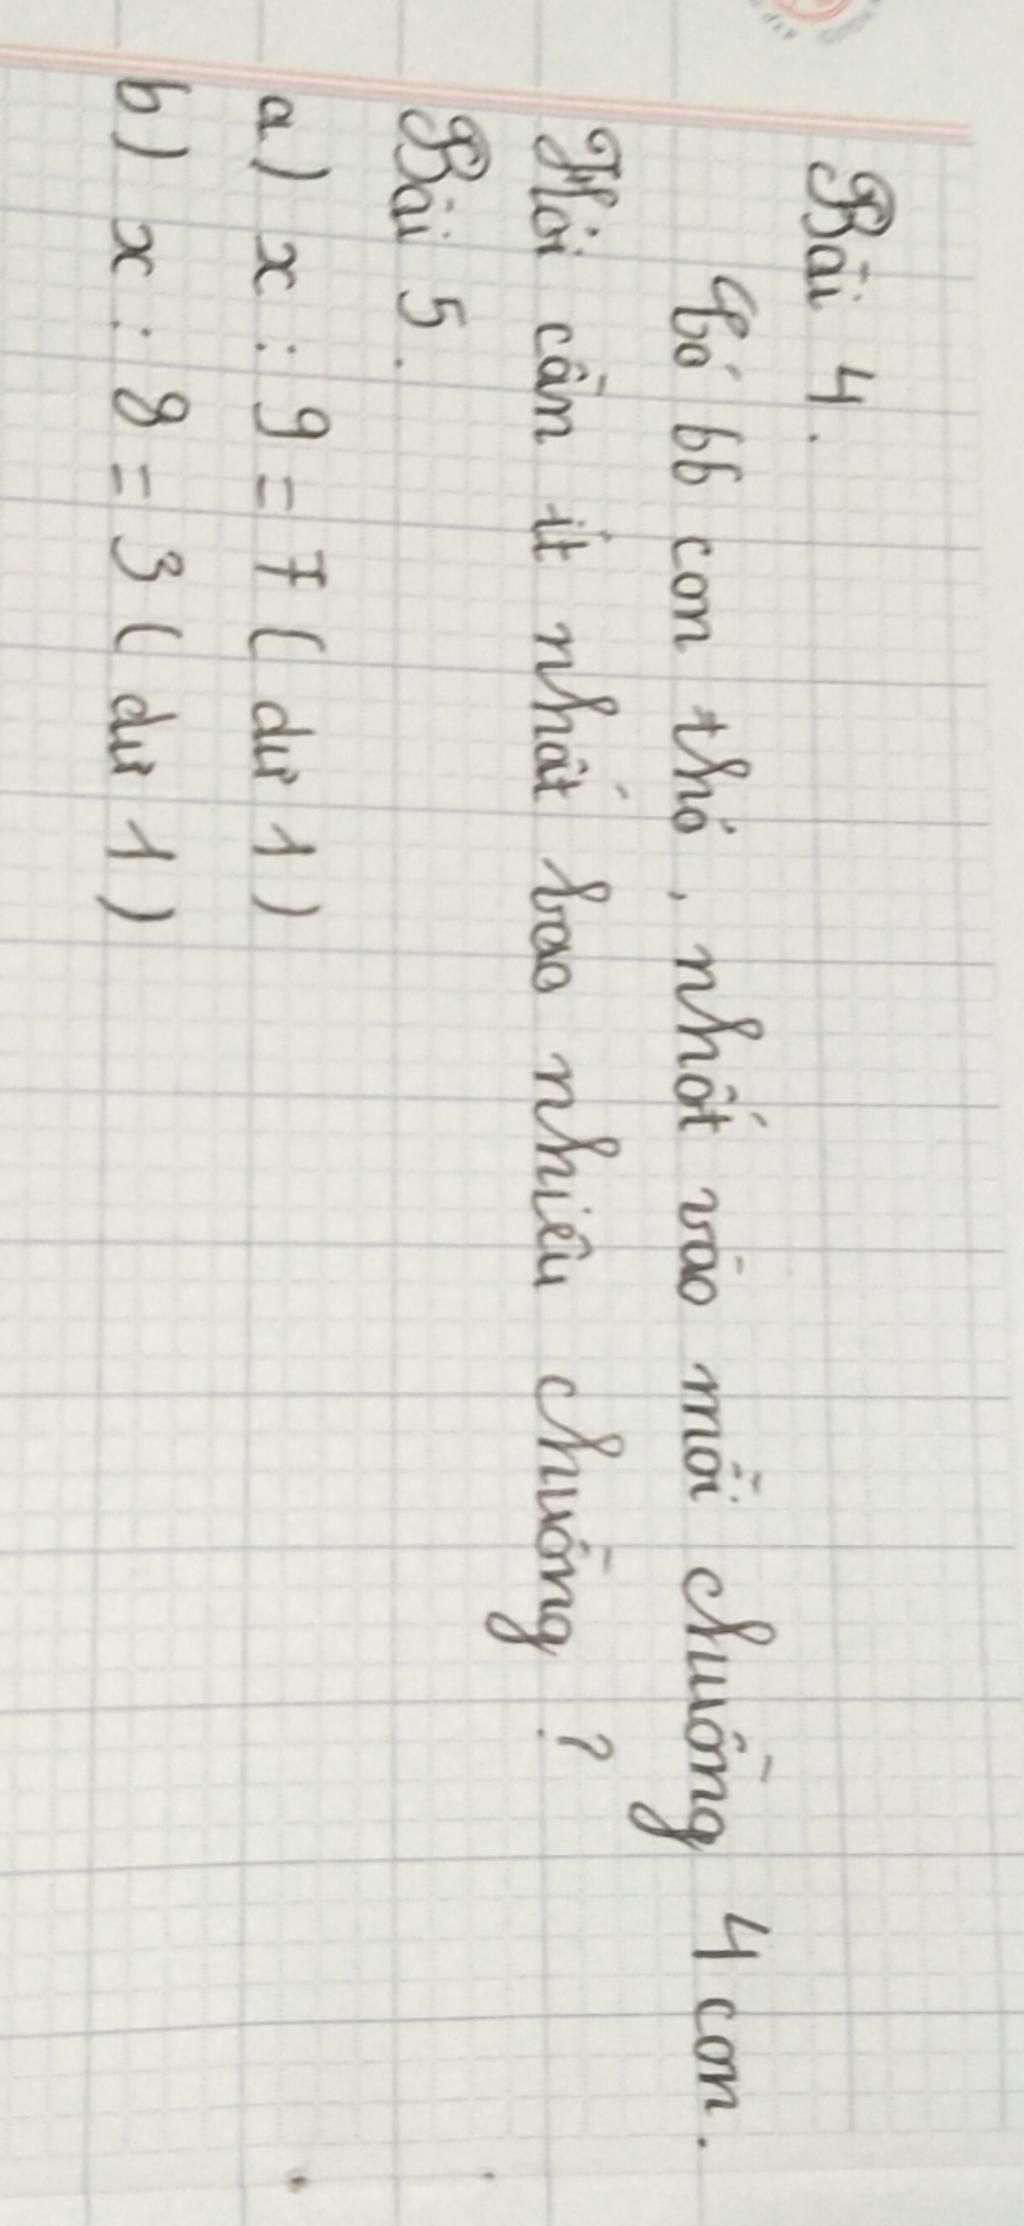 Bài 4.
Có 66 con thỏ, nhốt vào mỗi chuồng 4 con.
Hỏi cần ít nhất bao nhiêu chuồng ?
Bài 5.
a) x : 9 = 7 ( dư 1 )
b) x : 8 = 3 ( dư 1 )